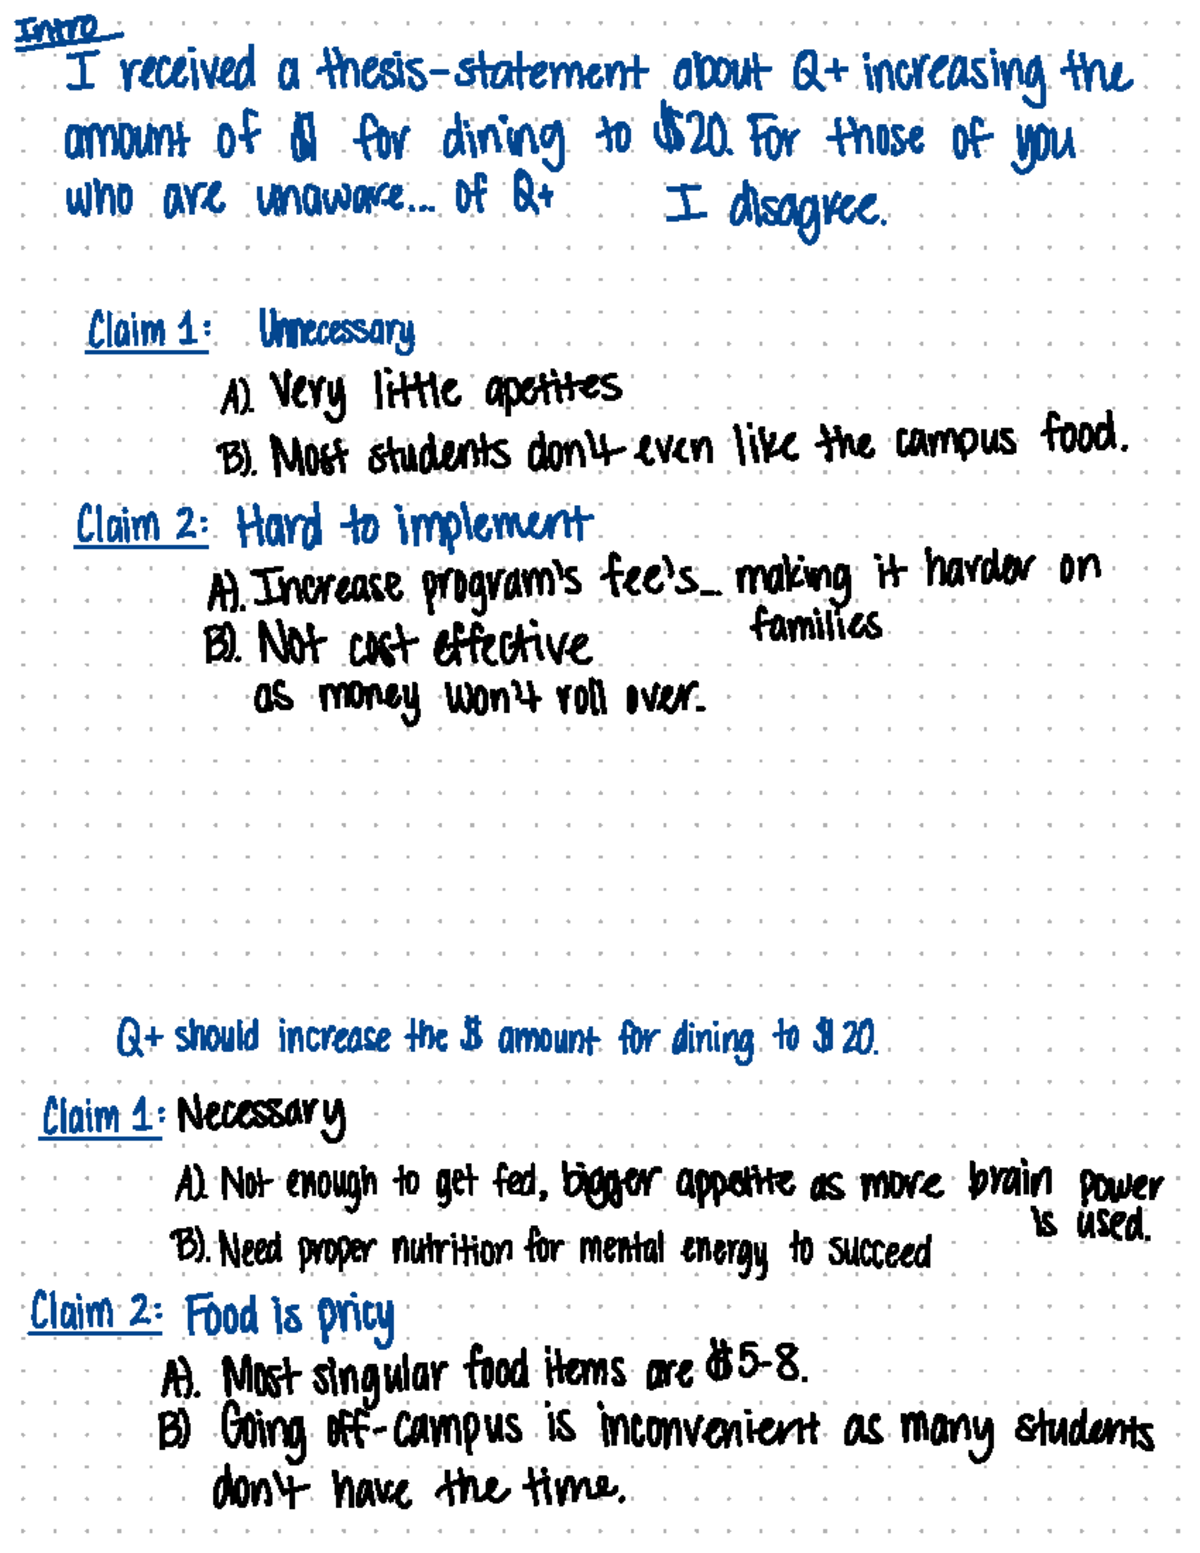 Intro
I received a thesis-statement about Q+ increasing the
amount of $ for dining to $20. For those of you
who are unaware... of Q+ I disagree.
Claim 1: Unnecessary
A). Very little apetites
B). Most students don't even like the campus food.
Claim 2: Hard to implement
A). Increase program's fee's_ making it harder on
families
B). Not cost effective
as money won't roll over.
Q+ should increase the $ amount for dining to $20.
Claim 1: Necessary
A). Not enough to get fed, bigger appetite as more brain power
is used.
B). Need proper nutrition for mental energy to succeed
Claim 2: Food is pricy
A). Most singular food items are $5-8.
B) Going off-campus is inconvenient as many students
don't have the time.